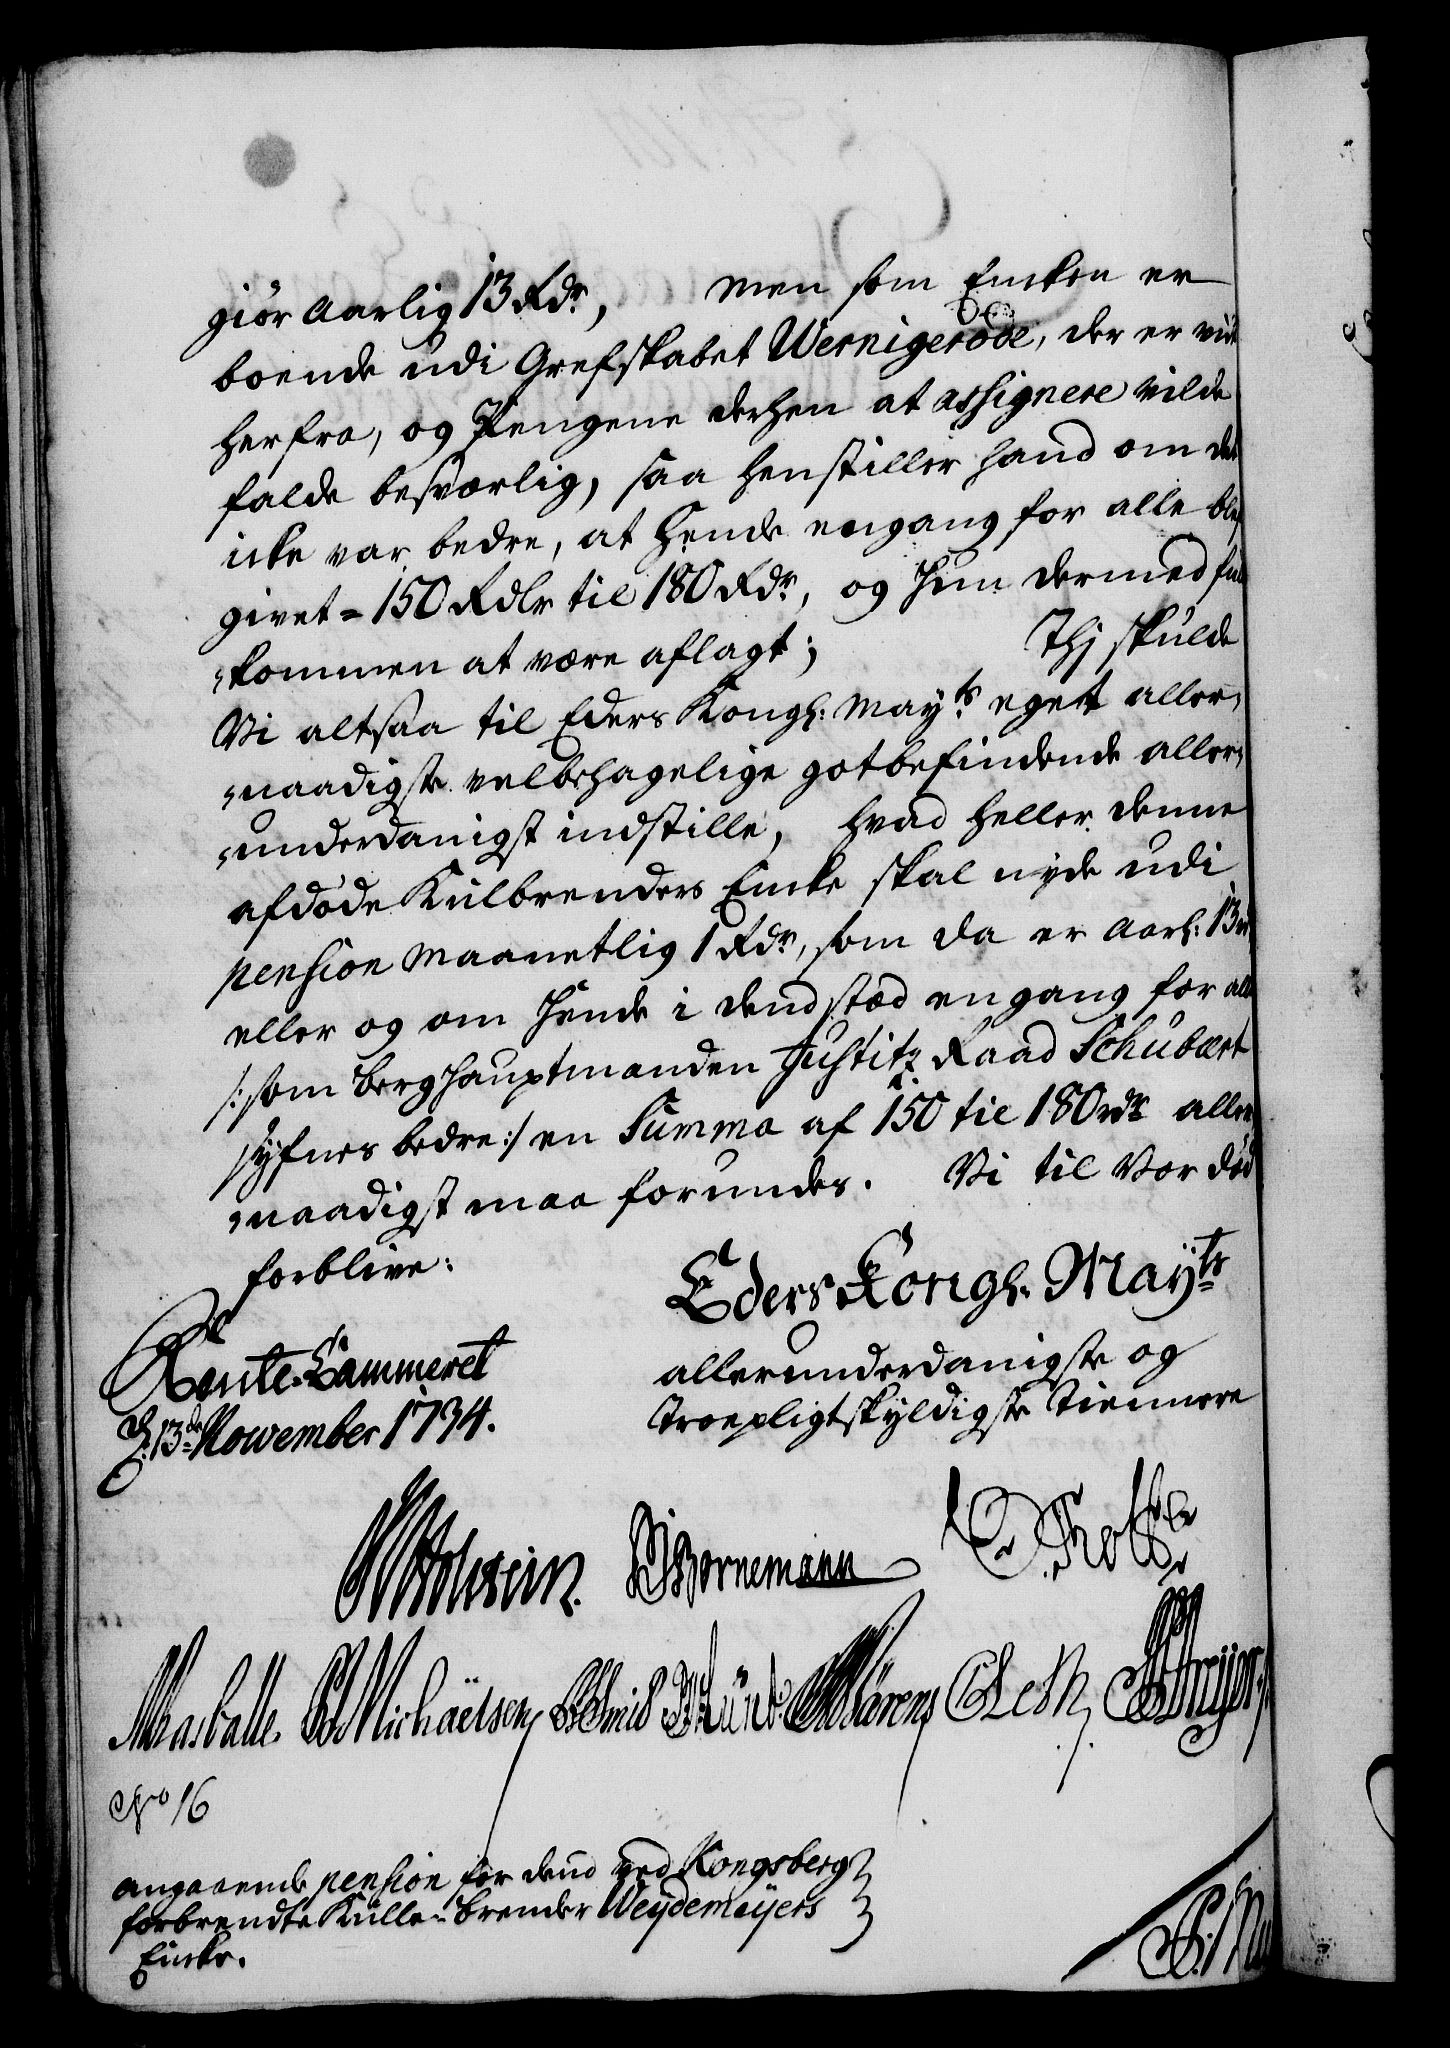 giör Aarlig 13 Rdr, men som Encken er
boende udi Grefskabet Wernigeröde, der er viit
herfra, og Pengene derhen at assignere vilde
falde besværlig, saa henstiller hand om det
icke var bedre, at Hende engang for alle blef
givet = 150 Rdlr til 180 Rdr, og Hun dermed ful
kommen at være aflagt; Thj skulde
Vi altsaa til Eders Kongl: Mayts eget aller,
naadigste velbehagelige gotbefindende aller,
underdanigst indstille, hvad heller denne
afdöde Kulbrenders Encke skal nyde udi
pension Maanetlig 1 Rdr, som da er Aarl: 13 rd,
eller og om Hende i dend stæd engang for alle
/: som Berghauptmanden Justitz Raad Schubært
syfnes bedre :/ en Summa af 150 til 180 rdr aller
naadigst maa forundes. Vi til Vor död
forblive:
Eders Kongl. Mayts
Rente-Cammeret
d. 13de November 1734.
allerunderdanigste og
Troepligtskyldigste Tiennere
Bornemann
Michaëlsen
No 16
angaaende pension for dend ved Kongsberg
forbrendte Kulle-Brender Weydemeyers
Encke.